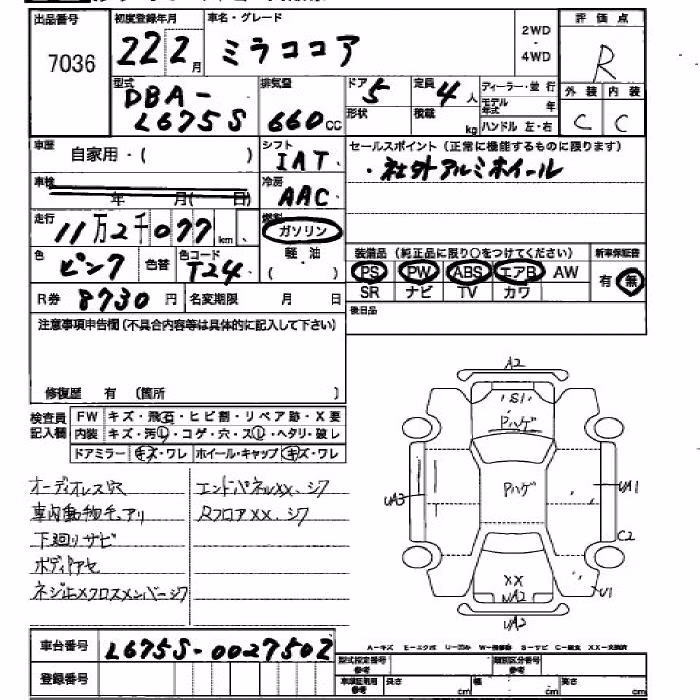 出品番号 初度登録年月 車名・グレード 2WD 評価点
7036 22 2月 ミラココア ・ R
4WD
型式 排気量 ドア 定員 ディーラー・並行 外装 内装
DBA- 5 4人 モデル年式 年 C C
L675S 660cc 形状 積載 kg ハンドル 左・右
車歴 自家用・( ) シフト IAT セールスポイント (正常に機能するものに限ります)
車検 年 月( 日) 冷房 AAC ・社外アルミホイール
走行 11万2千077km 燃料 ガソリン
軽・油 装備品 (純正品に限り○をつけてください) 新車保証書
色 ピンク 色替 色コード T24 ( ) PS PW ABS エアB AW 有・無
R券 8730円 名変期限 月 日 SR ナビ TV カワ
注意事項申告欄(不具合内容等は具体的に記入して下さい) 後日品
修復歴 有 (箇所 )
検査員記入欄 FW キズ・飛石・ヒビ割・リペア跡・X要
内装 キズ・汚レ・コゲ・穴・スレ・ヘタリ・破レ
ドアミラー キズ・ワレ ホイール・キャップ キズ・ワレ
オーディオレス穴 エンドパネルXX、シワ
車内動物毛アリ RフロアXX、シワ
下廻りサビ
ネジ止メクロスメンバーシワ
A2
S1
Pハゲ
Pハゲ
UA3 UA1
C2
XX
UA2 U1
UA2
A-キズ E-エクボ U-凹み W-補修跡 S-サビ C-腐食 XX-交換済
車台番号 L675S-0027502
登録番号 型式指定番号 参考 類別区分番号 参考
車庫証明用 参考 長さ cm 幅 cm 高さ cm